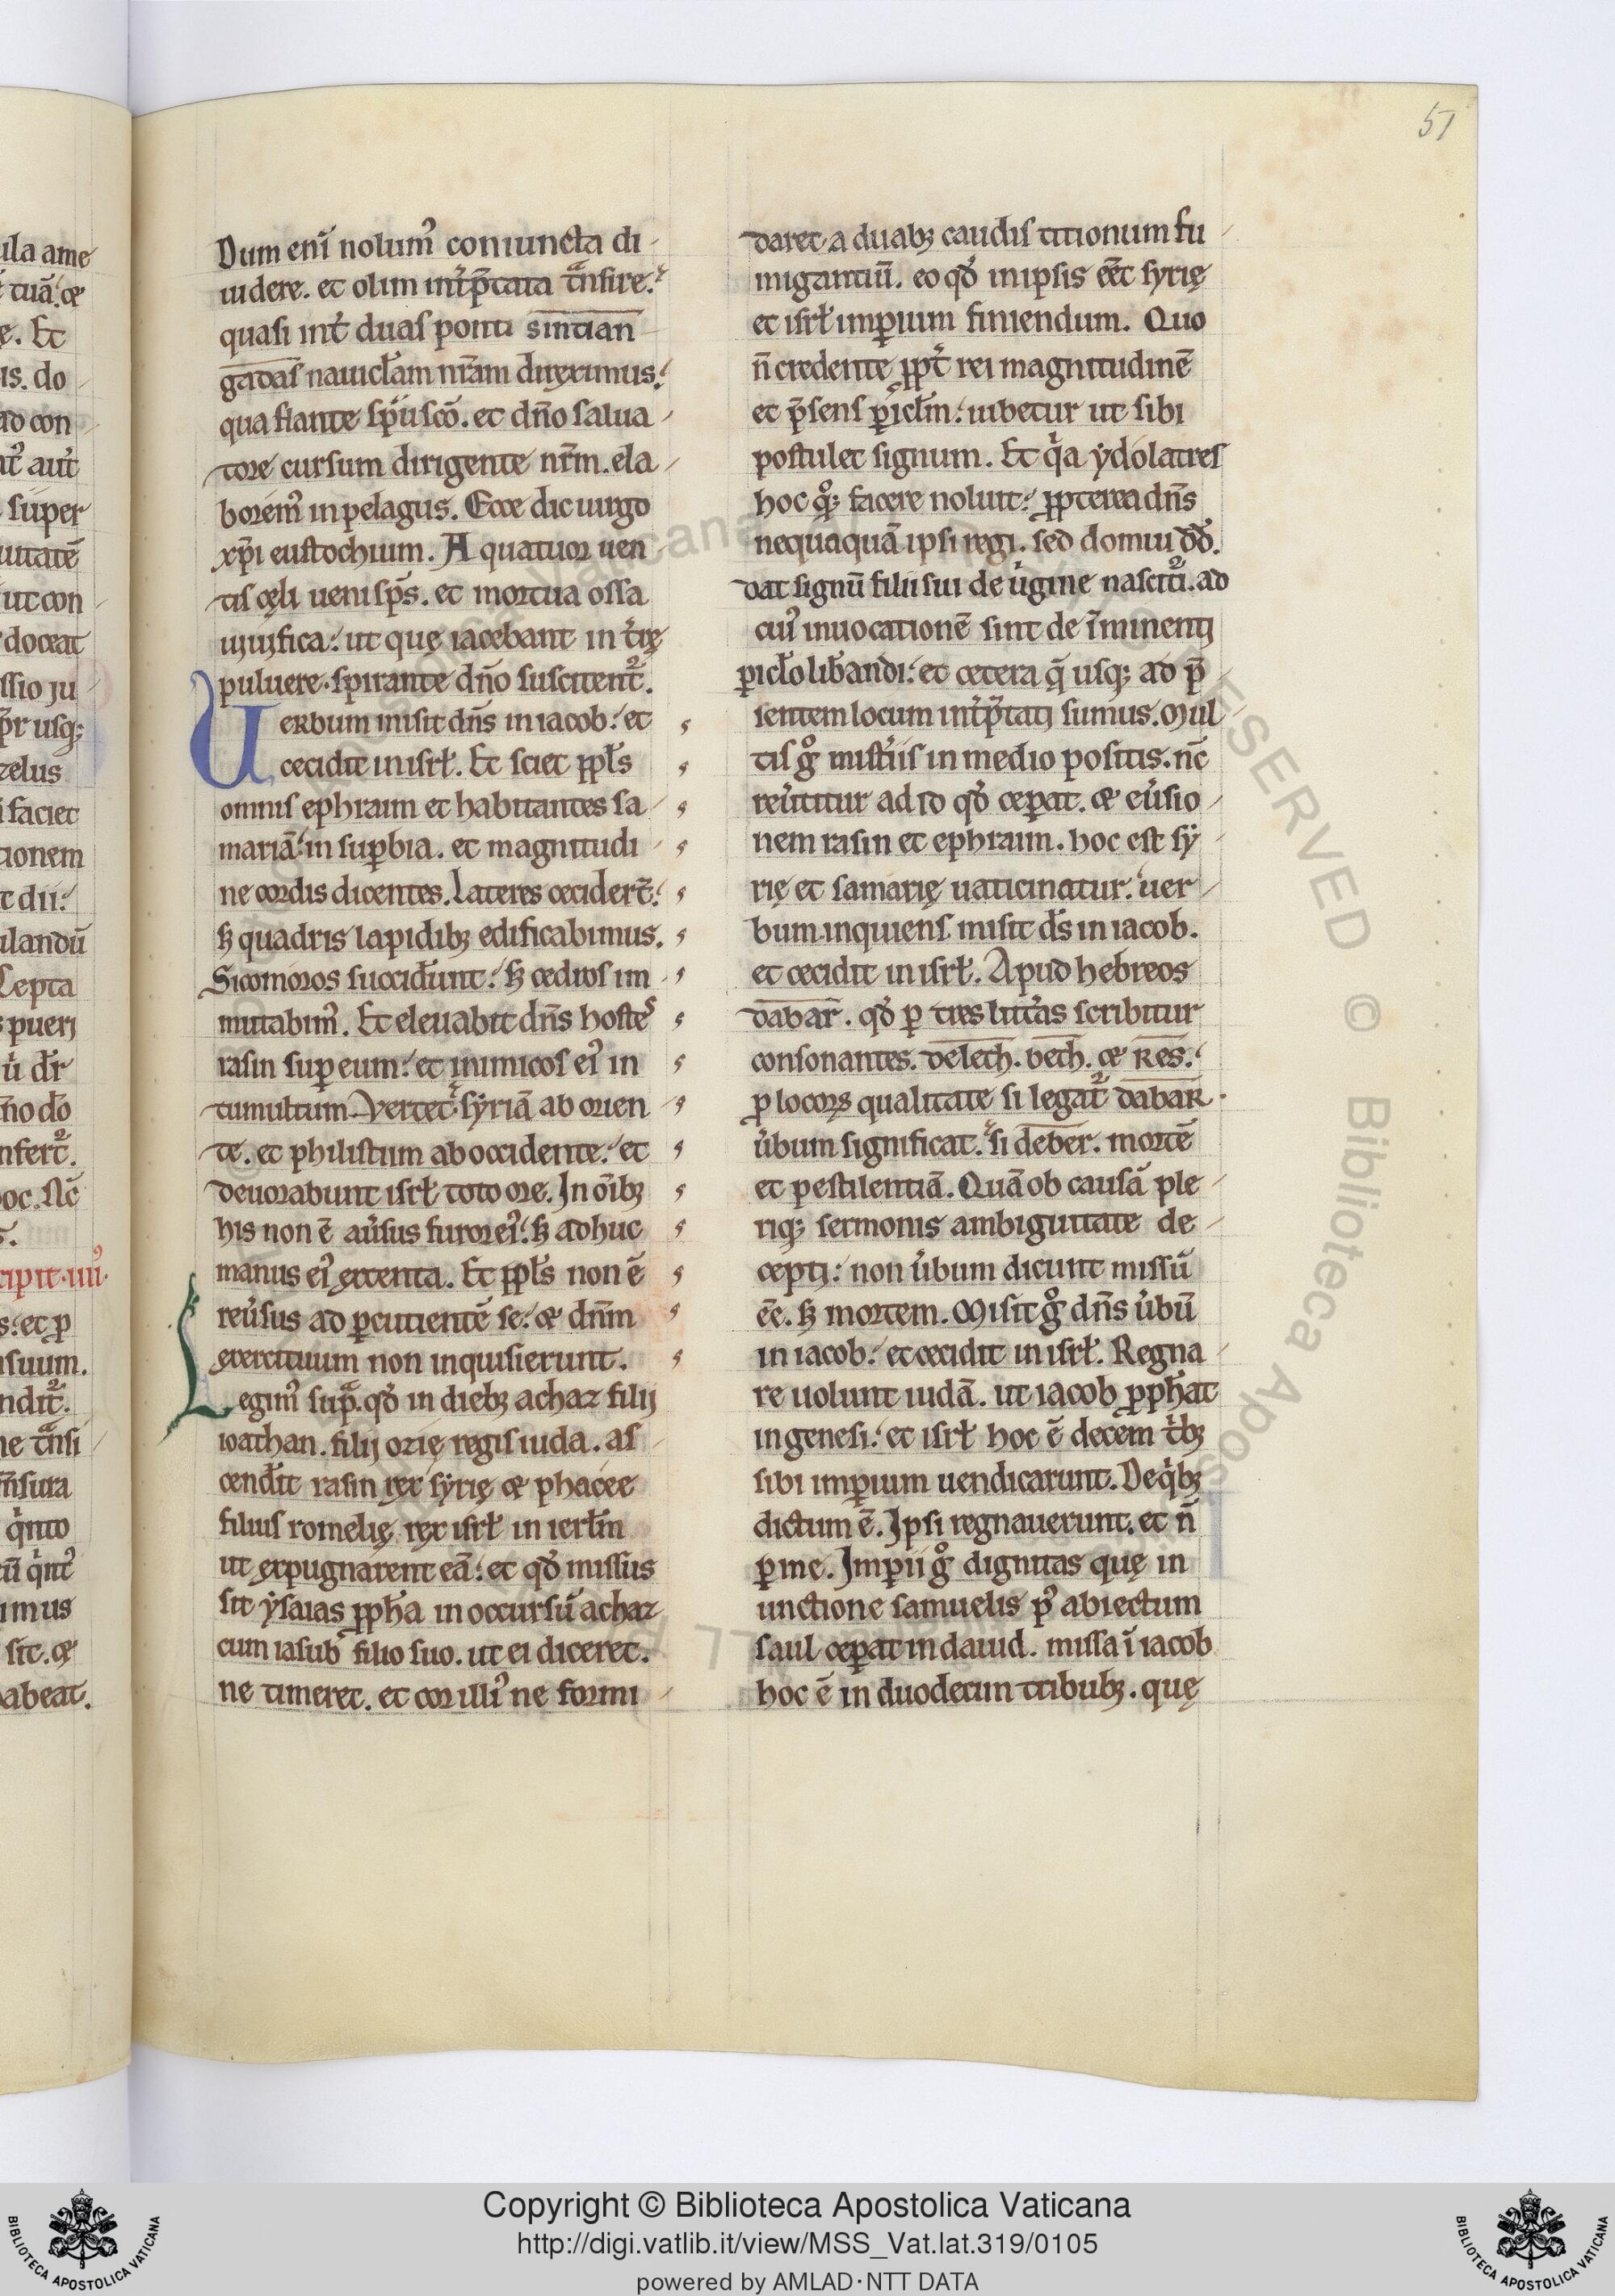 51
Dum eni̅ nolum᾽ coniuncta di
uidere. et olim int̾p̅tata t̅nsire.
quasi int̾ duas ponti sintian
gadas nauicl̅am nr̅am direximus.
qua flante sp̅u sc̅o. et dn̅o salua
tore cursum dirigente nr̅m. ela
borem᾽ in pelagus. Ecce dic uirgo
xp̅i eustochium. A quatuor uen
tis cęli ueni sp̅s. et mortua ossa
uiuifica. ut quę iacebant in t̾rę
puluere. spirante dn̅o suscitent᾽.
Uerbum misit dn̅s in iacob. et
cecidit in isrł. Et sciet ppl̅s
omnis ephraim et habitantes sa
maria̅. in supbia. et magnitudi
ne cordis dicentes. Lateres cecidert̅.
sꝫ quadris lapidibꝫ edificabimus.
Sicomoros succid̅unt. sꝫ cedros im
mutabim᾽. Et eleuabit dn̅s hoste᾽
rasin sup eum. et inimicos ei᾽ in
tumultum vertet. syria̅ ab orien
te. et philistiim ab occidente. et
deuorabunt isrł toto ore. In oi̅bꝫ
his non e̅ au̾sus furor ei᾽. sꝫ adhuc
manus ei᾽ extenta. Et ppl̅s non e̅
reu̾sus ad ꝑcutiente̅ se. et dn̅m
exercituum non inquisierunt.
Legim᾽ sup̅. qd̾ in diebꝫ achaz filij
ioathan. filij ozię regis iuda. as
cend̅it rasin rex syrię et phacee
filius romelię rex isrł in ierl̅m
ut expugnarent ea̅. et qd̾ missus
sit ysaias pph̅a in occursu̅ achaz
cum iasub filio suo. ut ei diceret.
ne timeret. et cor illi᾽ ne formi
daret a duabꝫ caudis titionum fu
migantiu̅. eo qd̾ in ipsis eet̅ syrię
et isrł imꝑium finiendum. Quo
n̅ credente ppt̾ rei magnitudine̅
et p̅sens ꝑicl̅m. iubetur ut sibi
postulet signum. Et qⁱa ydolatres
hoc qͦꝫ facere noluit. ppterea dn̅s
nequaqua̅ ipsi regi. sed domui dd̾.
dat signu̅ filii sui de uⁱgine nascitᵘi. ad
cui᾽ inuocatione̅ sint de i̅minenti
ꝑicl̅o lib̅andi. et cetera q̅ usqꝫ ad p̅
sentem locum int̾p̅tati sumus. Mul
tis gͦ mist̾iis in medio positis. nc̅
reu̾titur ad id qd̾ cepat. et eu̾sio
nem rasin et ephraim. hoc est sy
rię et samarię uaticinatur. uer
bum inquiens misit ds̅ in iacob.
et cecidit in isrł. Apud hebreos
dabar. qd̾ ꝑ tres litt̾as scribitur
consonantes. delech. beth. et Res.
ꝓ locoꝝ qualitate si legat᾽ dabar.
u̾bum significat. si deber. morte̅
et pestilentia̅. Qua̅ ob causa̅ ple
riqꝫ sermonis ambiguitate de
cepti. non u̾bum dicunt missu̅
ee̅. sꝫ mortem. Misit gͦ dn̅s u̾bu̅
in iacob. et cecidit in isrł. Regna
re uolunt iuda̅. ut iacob pph̅at
in genesi. et isrł hoc e̅ decem tⁱbꝫ
sibi imꝑium uendicarunt. De qⁱbꝫ
dictum e̅. Ipsi regnauerunt. et n̅
ꝑ me. Imꝑii gͦ dignitas quę in
unctione samuelis p᾽ abiectum
saul cepat in dauid. missa i̅ iacob
hoc e̅ in duodecim tribubꝫ. quę
Copyright © Biblioteca Apostolica Vaticana
http://digi.vatlib.it/view/MSS_Vat.lat.319/0105
powered by AMLAD·NTT DATA